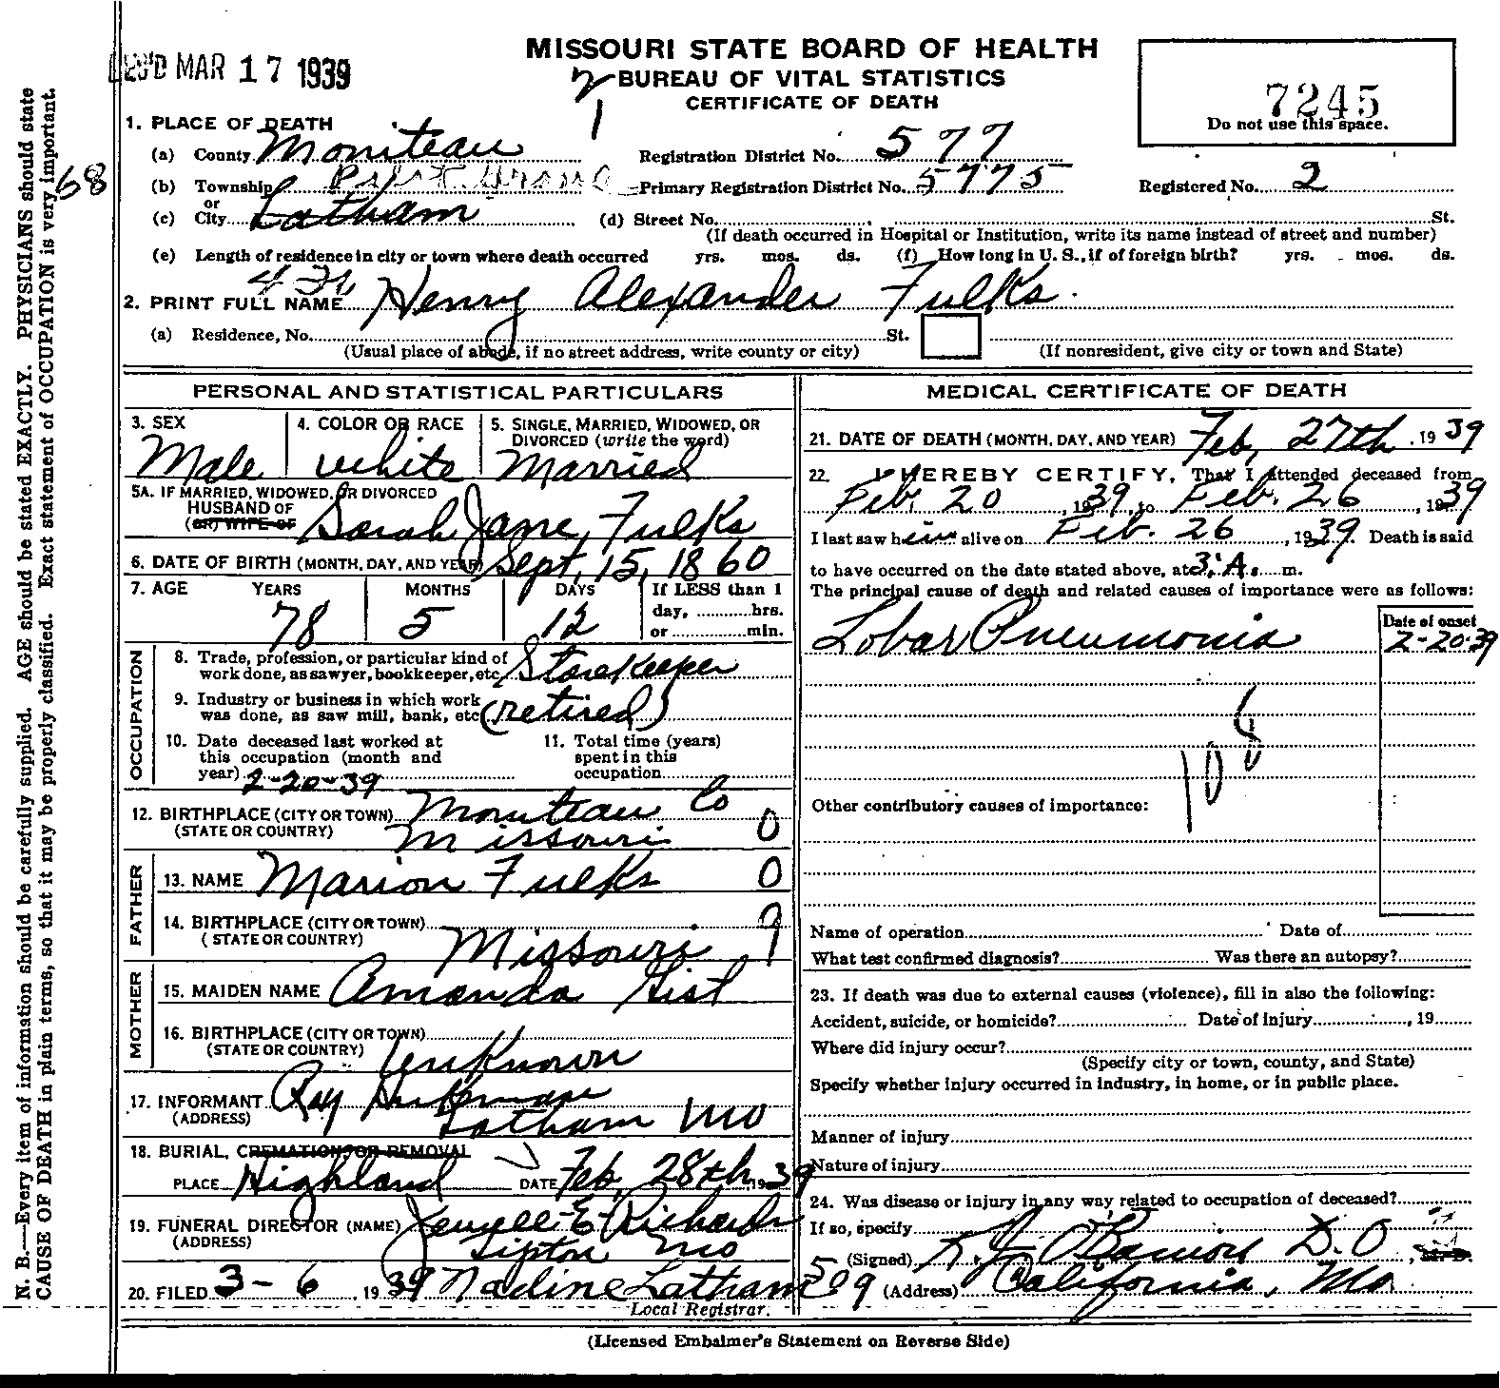 REC'D MAR 17 1939
MISSOURI STATE BOARD OF HEALTH
BUREAU OF VITAL STATISTICS
CERTIFICATE OF DEATH
7245
Do not use this space.
1. PLACE OF DEATH
(a) County Moniteau Registration District No. 577
(b) Township Primary Registration District No. 5775 Registered No. 2
or
(c) City Latham (d) Street No. St.
(If death occurred in Hospital or Institution, write its name instead of street and number)
(e) Length of residence in city or town where death occurred yrs. mos. ds. (f) How long in U. S., if of foreign birth? yrs. mos. ds.
2. PRINT FULL NAME Henry Alexander Fulks.
(a) Residence, No. St.
(Usual place of abode, if no street address, write county or city) (If nonresident, give city or town and State)
PERSONAL AND STATISTICAL PARTICULARS
3. SEX Male
4. COLOR OR RACE white
5. SINGLE, MARRIED, WIDOWED, OR DIVORCED (write the word) Married
5A. IF MARRIED, WIDOWED, OR DIVORCED
HUSBAND OF Sarah Jane Fulks
(OR) WIFE OF
6. DATE OF BIRTH (MONTH, DAY, AND YEAR) Sept, 15, 1860
7. AGE YEARS MONTHS DAYS If LESS than 1
78 5 12 day, hrs.
or min.
OCCUPATION
8. Trade, profession, or particular kind of
work done, as sawyer, bookkeeper, etc. Storekeeper
9. Industry or business in which work
was done, as saw mill, bank, etc. (retired)
10. Date deceased last worked at
this occupation (month and
year) 2-20-39
11. Total time (years)
spent in this
occupation
12. BIRTHPLACE (CITY OR TOWN) Moniteau Co 0
(STATE OR COUNTRY) Missouri
FATHER
13. NAME Marion Fulks 0
14. BIRTHPLACE (CITY OR TOWN) 9
(STATE OR COUNTRY) Missouri
MOTHER
15. MAIDEN NAME Amanda Gist
16. BIRTHPLACE (CITY OR TOWN)
(STATE OR COUNTRY) Unknown
17. INFORMANT Ray
(ADDRESS) Latham Mo
18. BURIAL, CREMATION, OR REMOVAL
PLACE Highland DATE Feb, 28th, 1939
19. FUNERAL DIRECTOR (NAME) Jewell E Richards
(ADDRESS) Tipton Mo
20. FILED 3-6, 1939 Nadine Latham
Local Registrar.
MEDICAL CERTIFICATE OF DEATH
21. DATE OF DEATH (MONTH, DAY, AND YEAR) Feb, 27th, 1939
22. I HEREBY CERTIFY, That I attended deceased from
Feb. 20, 1939, to Feb. 26, 1939
I last saw him alive on Feb. 26, 1939. Death is said
to have occurred on the date stated above, at 3 A. m.
The principal cause of death and related causes of importance were as follows:
Date of onset
Lobar Pneumonia 2-20-39
108
Other contributory causes of importance:
Name of operation Date of
What test confirmed diagnosis? Was there an autopsy?
23. If death was due to external causes (violence), fill in also the following:
Accident, suicide, or homicide? Date of injury, 19
Where did injury occur?
(Specify city or town, county, and State)
Specify whether injury occurred in industry, in home, or in public place.
Manner of injury
Nature of injury
24. Was disease or injury in any way related to occupation of deceased?
If so, specify
(Signed) D.O. M. D.
509 (Address) California, Mo.
(Licensed Embalmer's Statement on Reverse Side)
N. B.—Every item of information should be carefully supplied. AGE should be stated EXACTLY. PHYSICIANS should state
CAUSE OF DEATH in plain terms, so that it may be properly classified. Exact statement of OCCUPATION is very important.
68